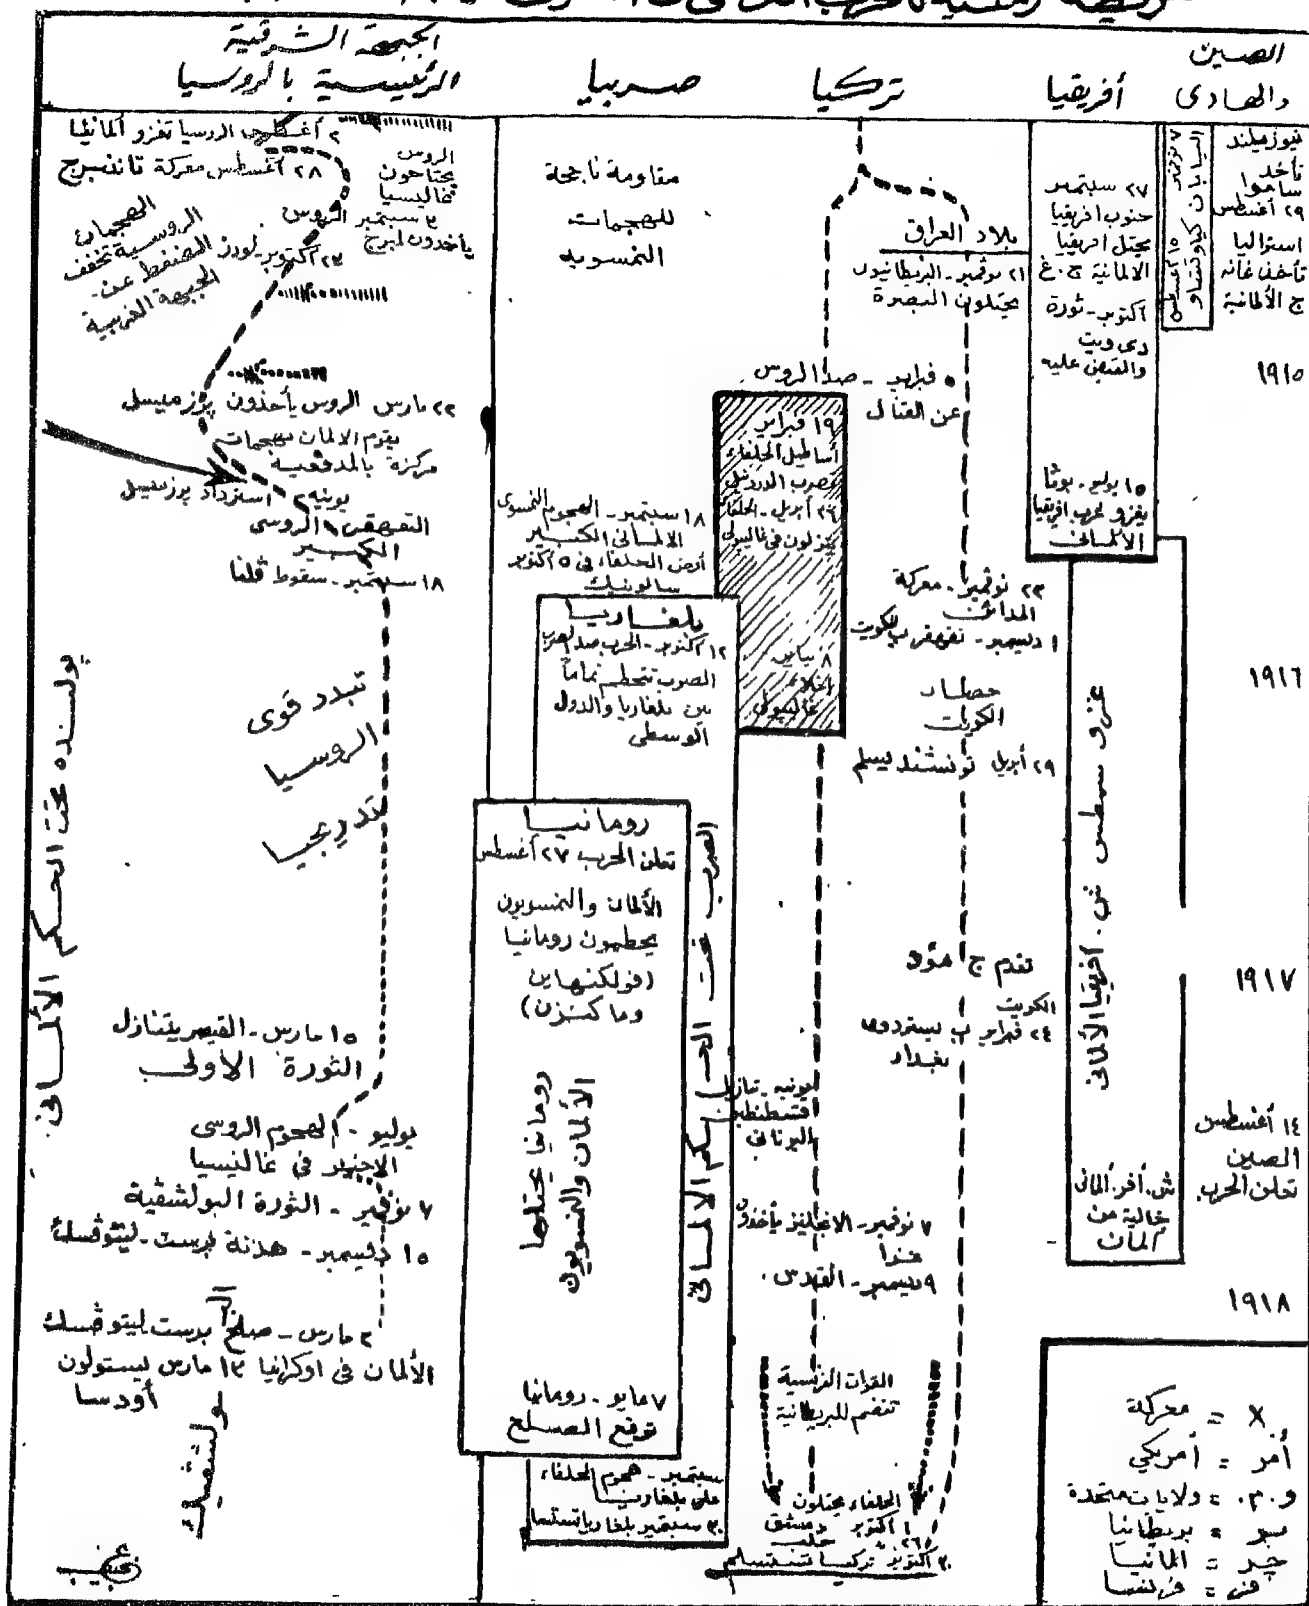 الصين
والهادى
أفريقيا
تركيا
صربيا
الجبهة الشرقية
الرئيسية بالروسيا
نيوزيلند
تأخذ
ساموا
٢٩ أغسطس
استراليا
تأخذ غانه
ج الألمانية
١٩١٥
١٩١٦
١٩١٧
١٤ أغسطس
الصين
تعلن الحرب
١٩١٨
٢٧ سبتمبر
جنوب افريقيا
يحتل افريقيا
الالمانية ج.غ
اكتوبر - ثورة
دى ويت
والقبض عليه
١٥ يوليو - بوثا
يغزو غرب افريقيا
الألمانى
غزو سمطس ش. افريقيا الألمانى
ش. أفر. ألمانى
خالية من
ألمان
بلاد العراق
٢١ نوفمبر - البريطانيون
يحتلون البصرة
فبراير - صد الروس
عن القتال
١٩ فبراير
أساطيل الحلفاء
تضرب الدردنيل
٢٦ أبريل - الحلفاء
ينزلون فى غاليبولى
٨ يناير
إخلاء
غاليبولى
٢٣ نوفمبر - معركة
المدائن
١ ديسمبر - تقهقر ب للكويت
حصار
الكويت
٢٩ أبريل تونشند يسلم
تقدم ج مود
الكويت
٢٤ فبراير ب يستردون
بغداد
يونيه - تنازل
قسطنطين
اليونانى
٧ نوفمبر - الانجليز يأخذون
غزا
٩ ديسمبر - القدس.
القوات الفرنسية
تنضم للبريطانية
الحلفاء يحتلون
١ اكتوبر دمشق
٢٦ " حلب
٣٠ أكتوبر تركيا تستسلم
مقاومة ناجحة
للهجمات
النمسويه
١٨ سبتمبر - الهجوم النمسوى
الالمانى الكبير
أرض الحلفاء فى ٥ أكتوبر
سالونيك
بلغاريا
١٢ اكتوبر - الحرب ضد الصرب
الصرب تتحطم تماماً
بين بلغاريا والدول
الوسطى
الصرب تحت الحكم الالمانى
رومانيا
تعلن الحرب ٢٧ أغسطس
الألمان والنمسويون
يحطمون رومانيا
(فولكنهاين
وماكنزن)
رومانيا يحتلها
الألمان والنمسويون
٧ مايو - رومانيا
توقع الصلح
سبتمبر - هجوم الحلفاء
على بلغاريا
٣٠ سبتمبر بلغاريا تستسلم
٢ أغسطس الروسيا تغزو ألمانيا
٢٨ أغسطس معركة تاننبرج
الروس
يجتاحون
غاليسيا
٣ سبتمبر الروس
يأخذون لمبرج
٢٣ اكتوبر - لودز
الهجمات
الروسية تخفف
الضغط عن
الجبهة الغربية
٢٢ مارس الروس يأخذون پرزميسل
يقوم الالمان بهجمات
مركزة بالمدفعيه
يونيه ٢ استرداد پرزميسل
التقهقر الروسى
الكبير
١٨ سبتمبر - سقوط ڤلنا
تبدد قوى
الروسيا
تدريجيا
پولنده تحت الحكم الألمانى.
١٥ مارس - القيصر يتنازل
الثورة الأولى
يوليو - الهجوم الروسى
الاخير فى غاليسيا
٧ نوفمبر - الثورة البولشفية
١٥ ديسمبر - هدنة برست - ليتوڤسك
٢ مارس - صلح برست ليتوڤسك
الألمان فى اوكرانيا ١٣ مارس يستولون
أودسا
x = معركة
أمر = أمريكي
و.م. = ولايات متحدة
بر = بريطانيا
جر = المانيا
فر = فرنسا